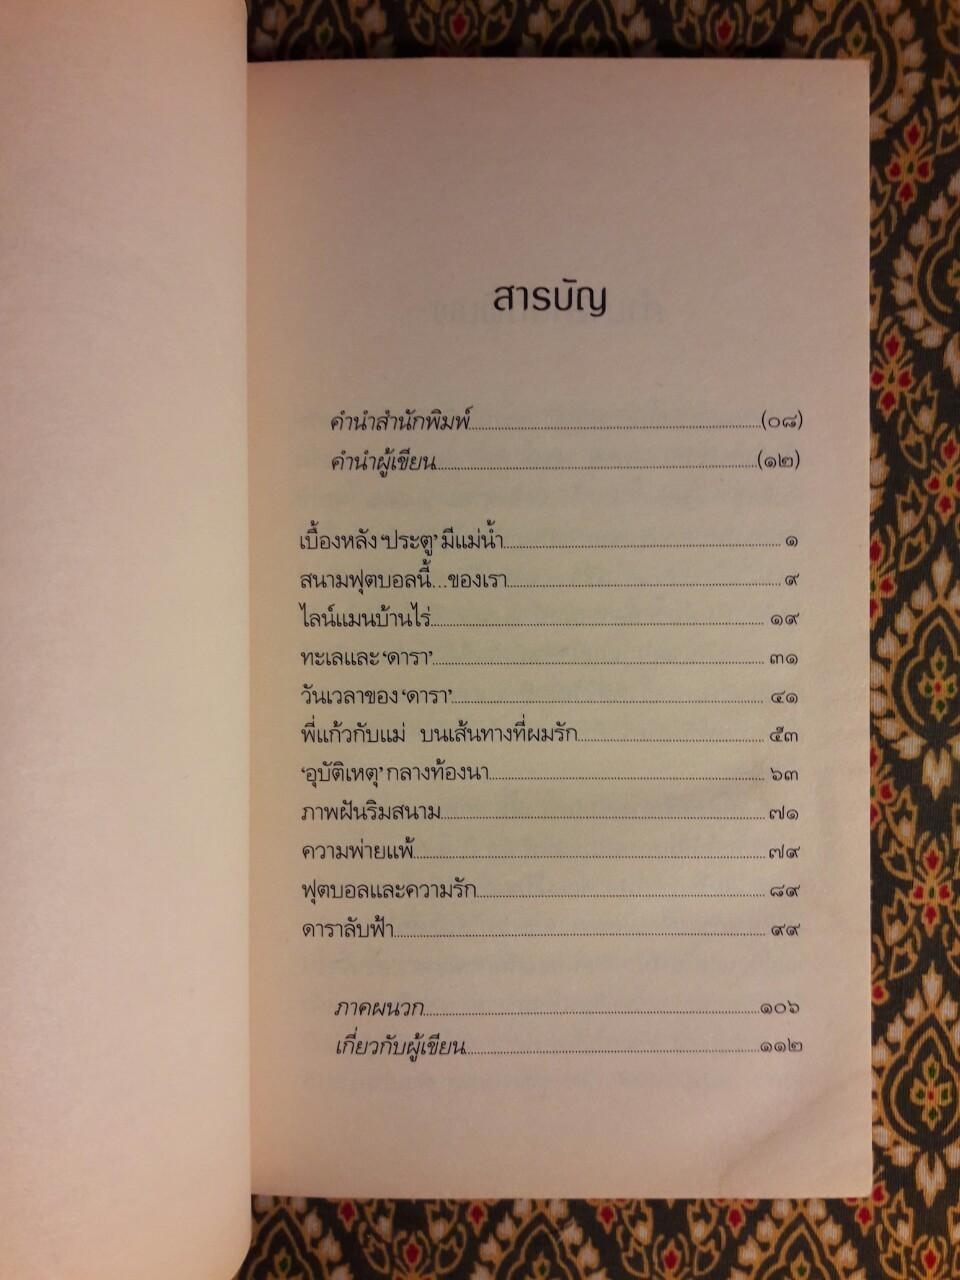 สารบัญ
คำนำสำนักพิมพ์ (๐๘)
คำนำผู้เขียน (๑๒)
เบื้องหลัง ‘ประตู’ มีแม่น้ำ ๑
สนามฟุตบอลนี้...ของเรา ๙
ไลน์แมนบ้านไร่ ๑๙
ทะเลและ ‘ดารา’ ๓๑
วันเวลาของ ‘ดารา’ ๔๑
พี่แก้วกับแม่ บนเส้นทางที่ผมรัก ๕๓
‘อุบัติเหตุ’ กลางท้องนา ๖๓
ภาพฝันริมสนาม ๗๑
ความพ่ายแพ้ ๗๙
ฟุตบอลและความรัก ๘๙
ดาราลับฟ้า ๙๙
ภาคผนวก ๑๐๖
เกี่ยวกับผู้เขียน ๑๑๒